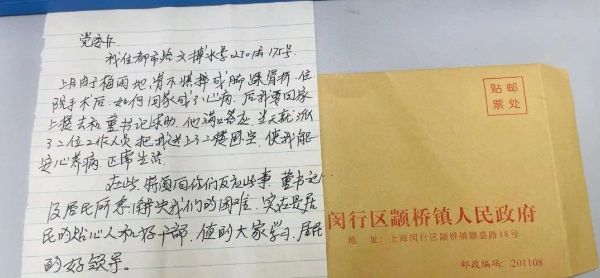 党委办
我住都市路 2301弄175号
上月由于梅园地滑不慎摔成脚踝骨折,住
院手术后如何回家成了心病,后我要回家
上楼去和董书记求助,他满口答应,当天就派
了二位工作人员把我送上了楼回室,使我能
安心养病,正常生活。
在此特意向你们反应此事,董书记
及居民所 解决我们的困难,实在是居
民的贴心人和好干部,值的大家学习,居民
的好领导。
贴邮
票处
闵行区颛桥镇人民政府
地 址:上海闵行区颛桥颛盛路18号
邮政编码:201108